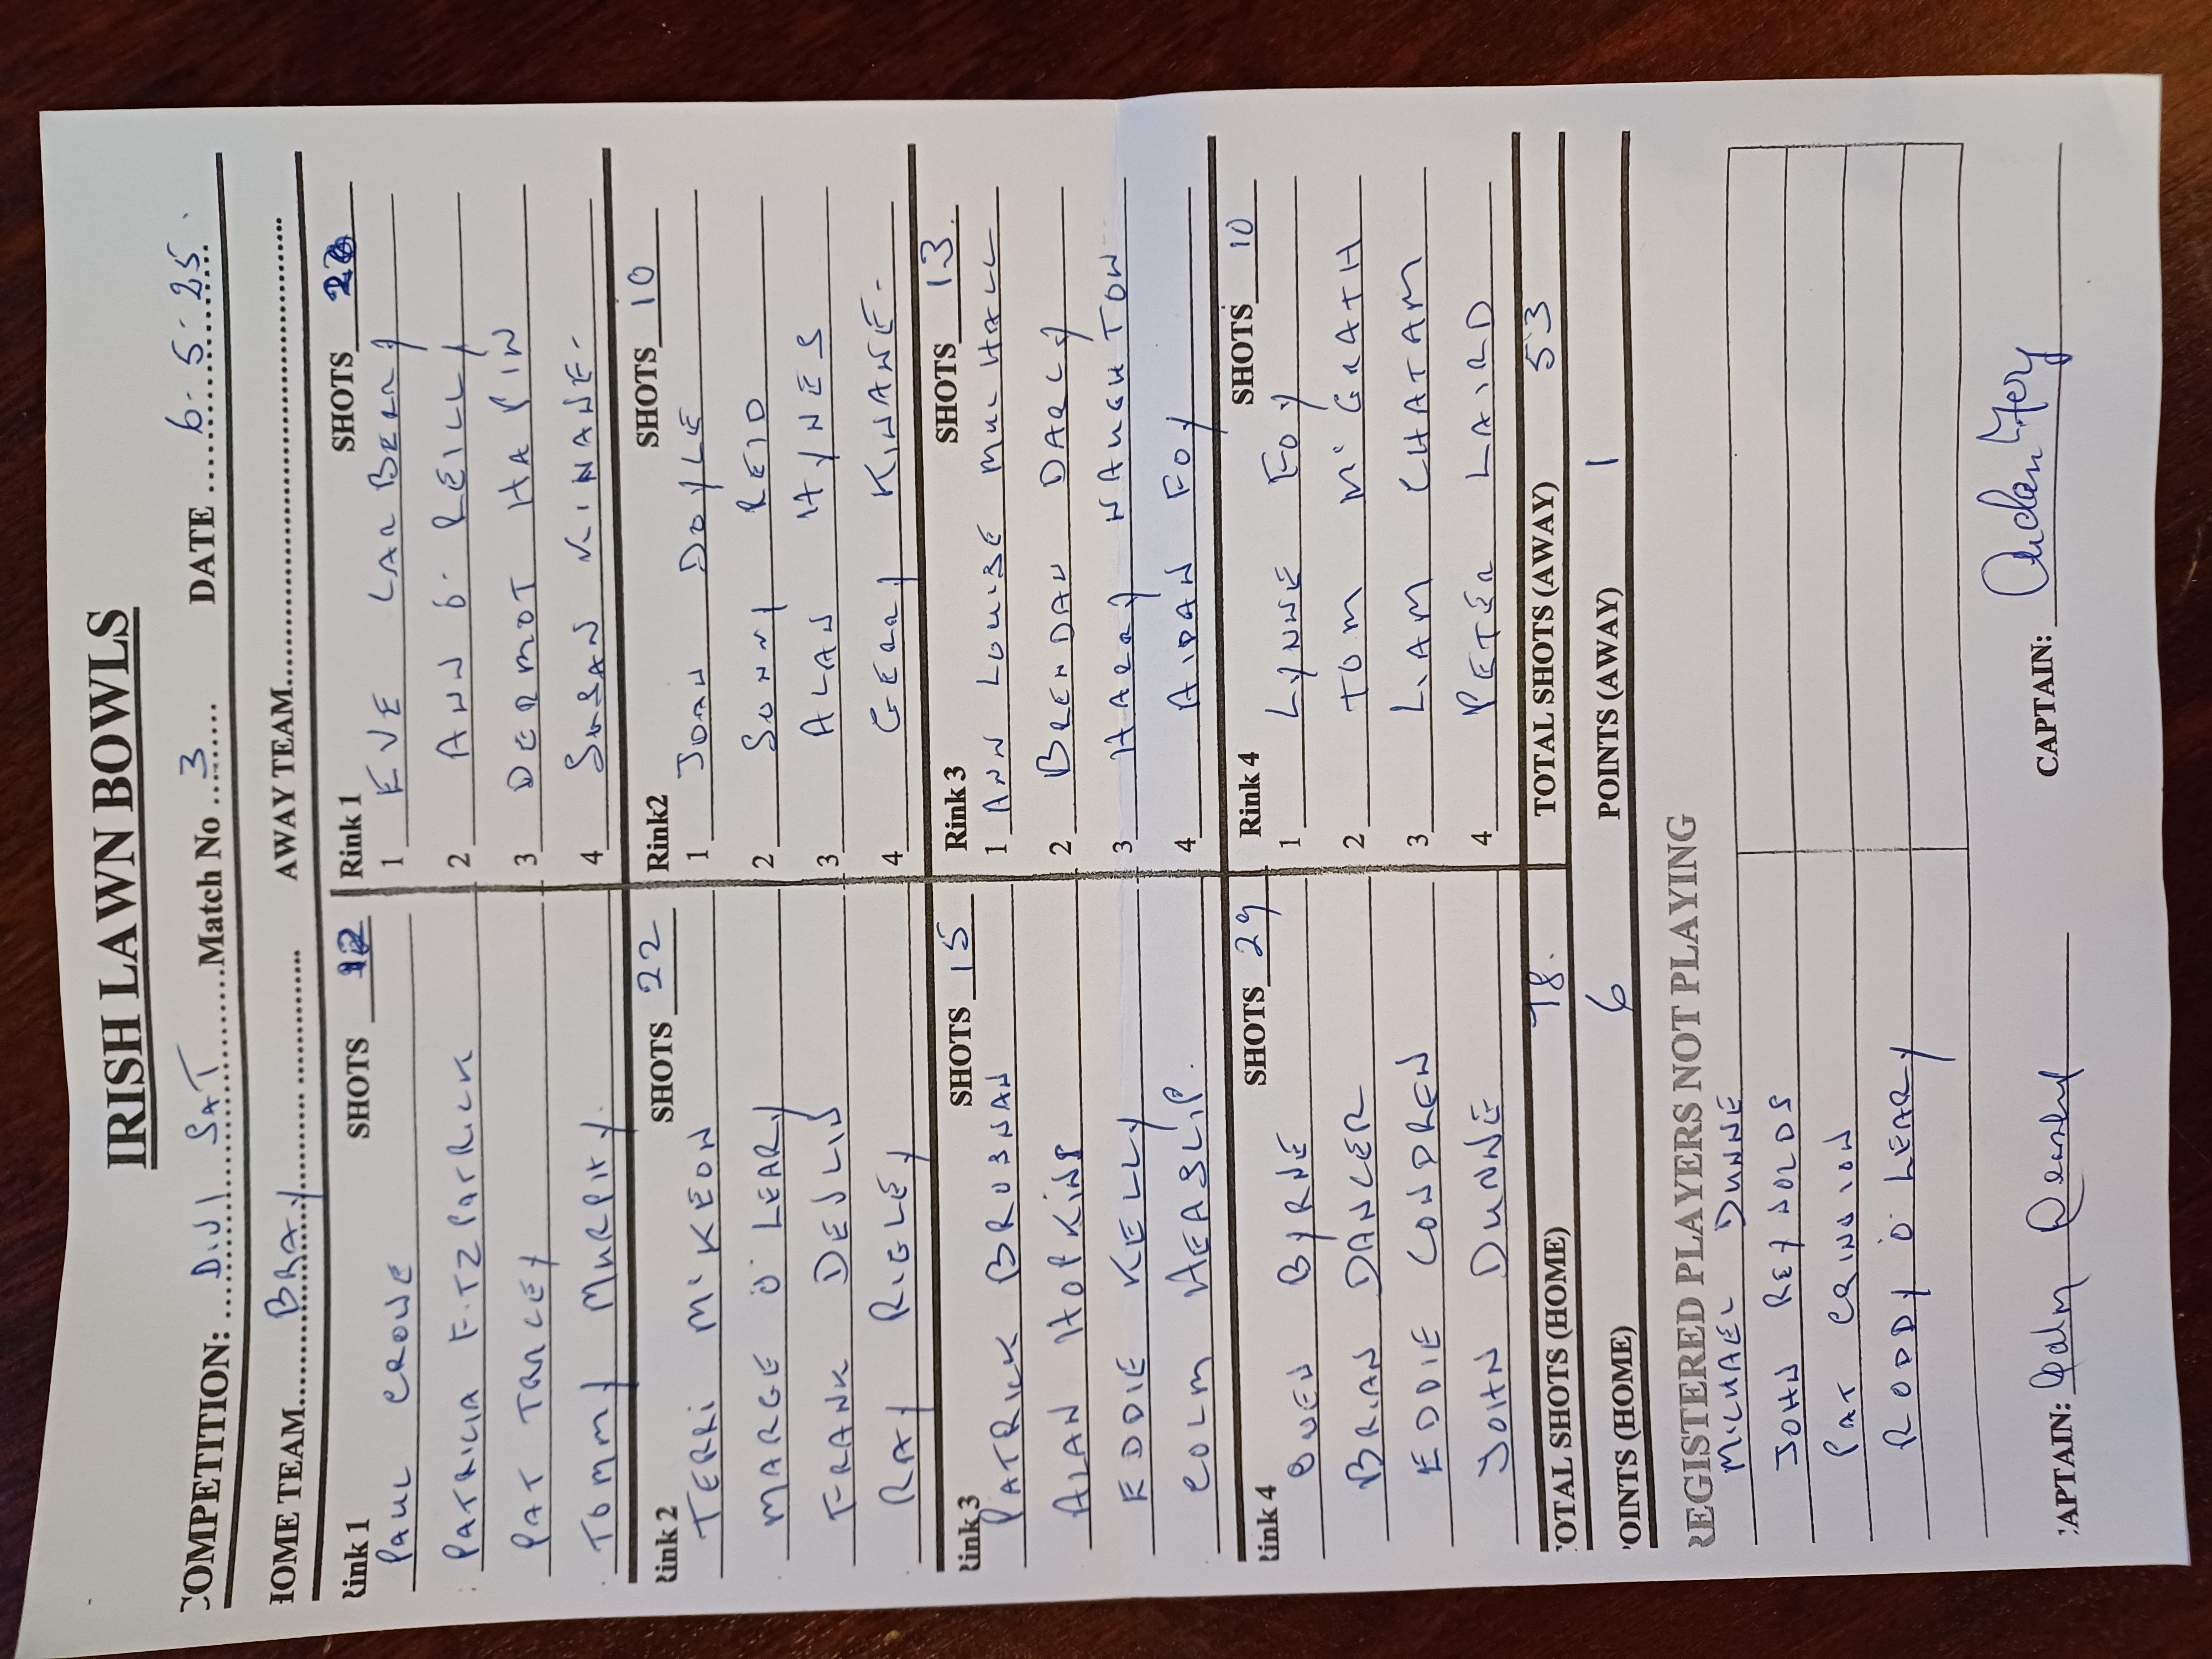 IRISH LAWN BOWLS
COMPETITION: DIVI SAT Match No 3 DATE 6-5-25.
HOME TEAM BRAY AWAY TEAM
Rink 1 SHOTS 12
PAUL CROWE
PATRICIA FITZPATRICK
PAT TRACEY
TOMMY MURPHY.
Rink 1 SHOTS 20
1 EVE LARBERRY
2 ANN O'REILLY
3 DERMOT HALPIN
4 SUSAN KINANE-
Rink 2 SHOTS 22
TERRI McKEON
MARGE O'LEARY
FRANK DEVLIN
RAY RIGLEY
Rink2 SHOTS 10
1 JOAN DOYLE
2 SONNY REID
3 ALAN HAYNES
4 GERRY KINANE-
Rink 3 SHOTS 15
PATRICK BROSNAN
ALAN HOPKINS
EDDIE KELLY
COLM HEASLIP.
Rink 3 SHOTS 13.
1 ANN LOUISE MULHALL
2 BRENDAN DARCY
3 HARRY NAUGHTON
4 AIDAN FOY
Rink 4 SHOTS 29
OWEN BYRNE
BRIAN DANCER
EDDIE CONDREN
JOHN DUNNE
Rink 4 SHOTS 10
1 LYNNE FOY
2 TOM McGRATH
3 LIAM CHATAM
4 PETER LAIRD
TOTAL SHOTS (HOME) 78. TOTAL SHOTS (AWAY) 53
POINTS (HOME) 6 POINTS (AWAY) 1
REGISTERED PLAYERS NOT PLAYING
MICHAEL DUNNE
JOHN REYNOLDS
PAT CRINION
RODDY O'LEARY
CAPTAIN: CAPTAIN: Aidan Foy